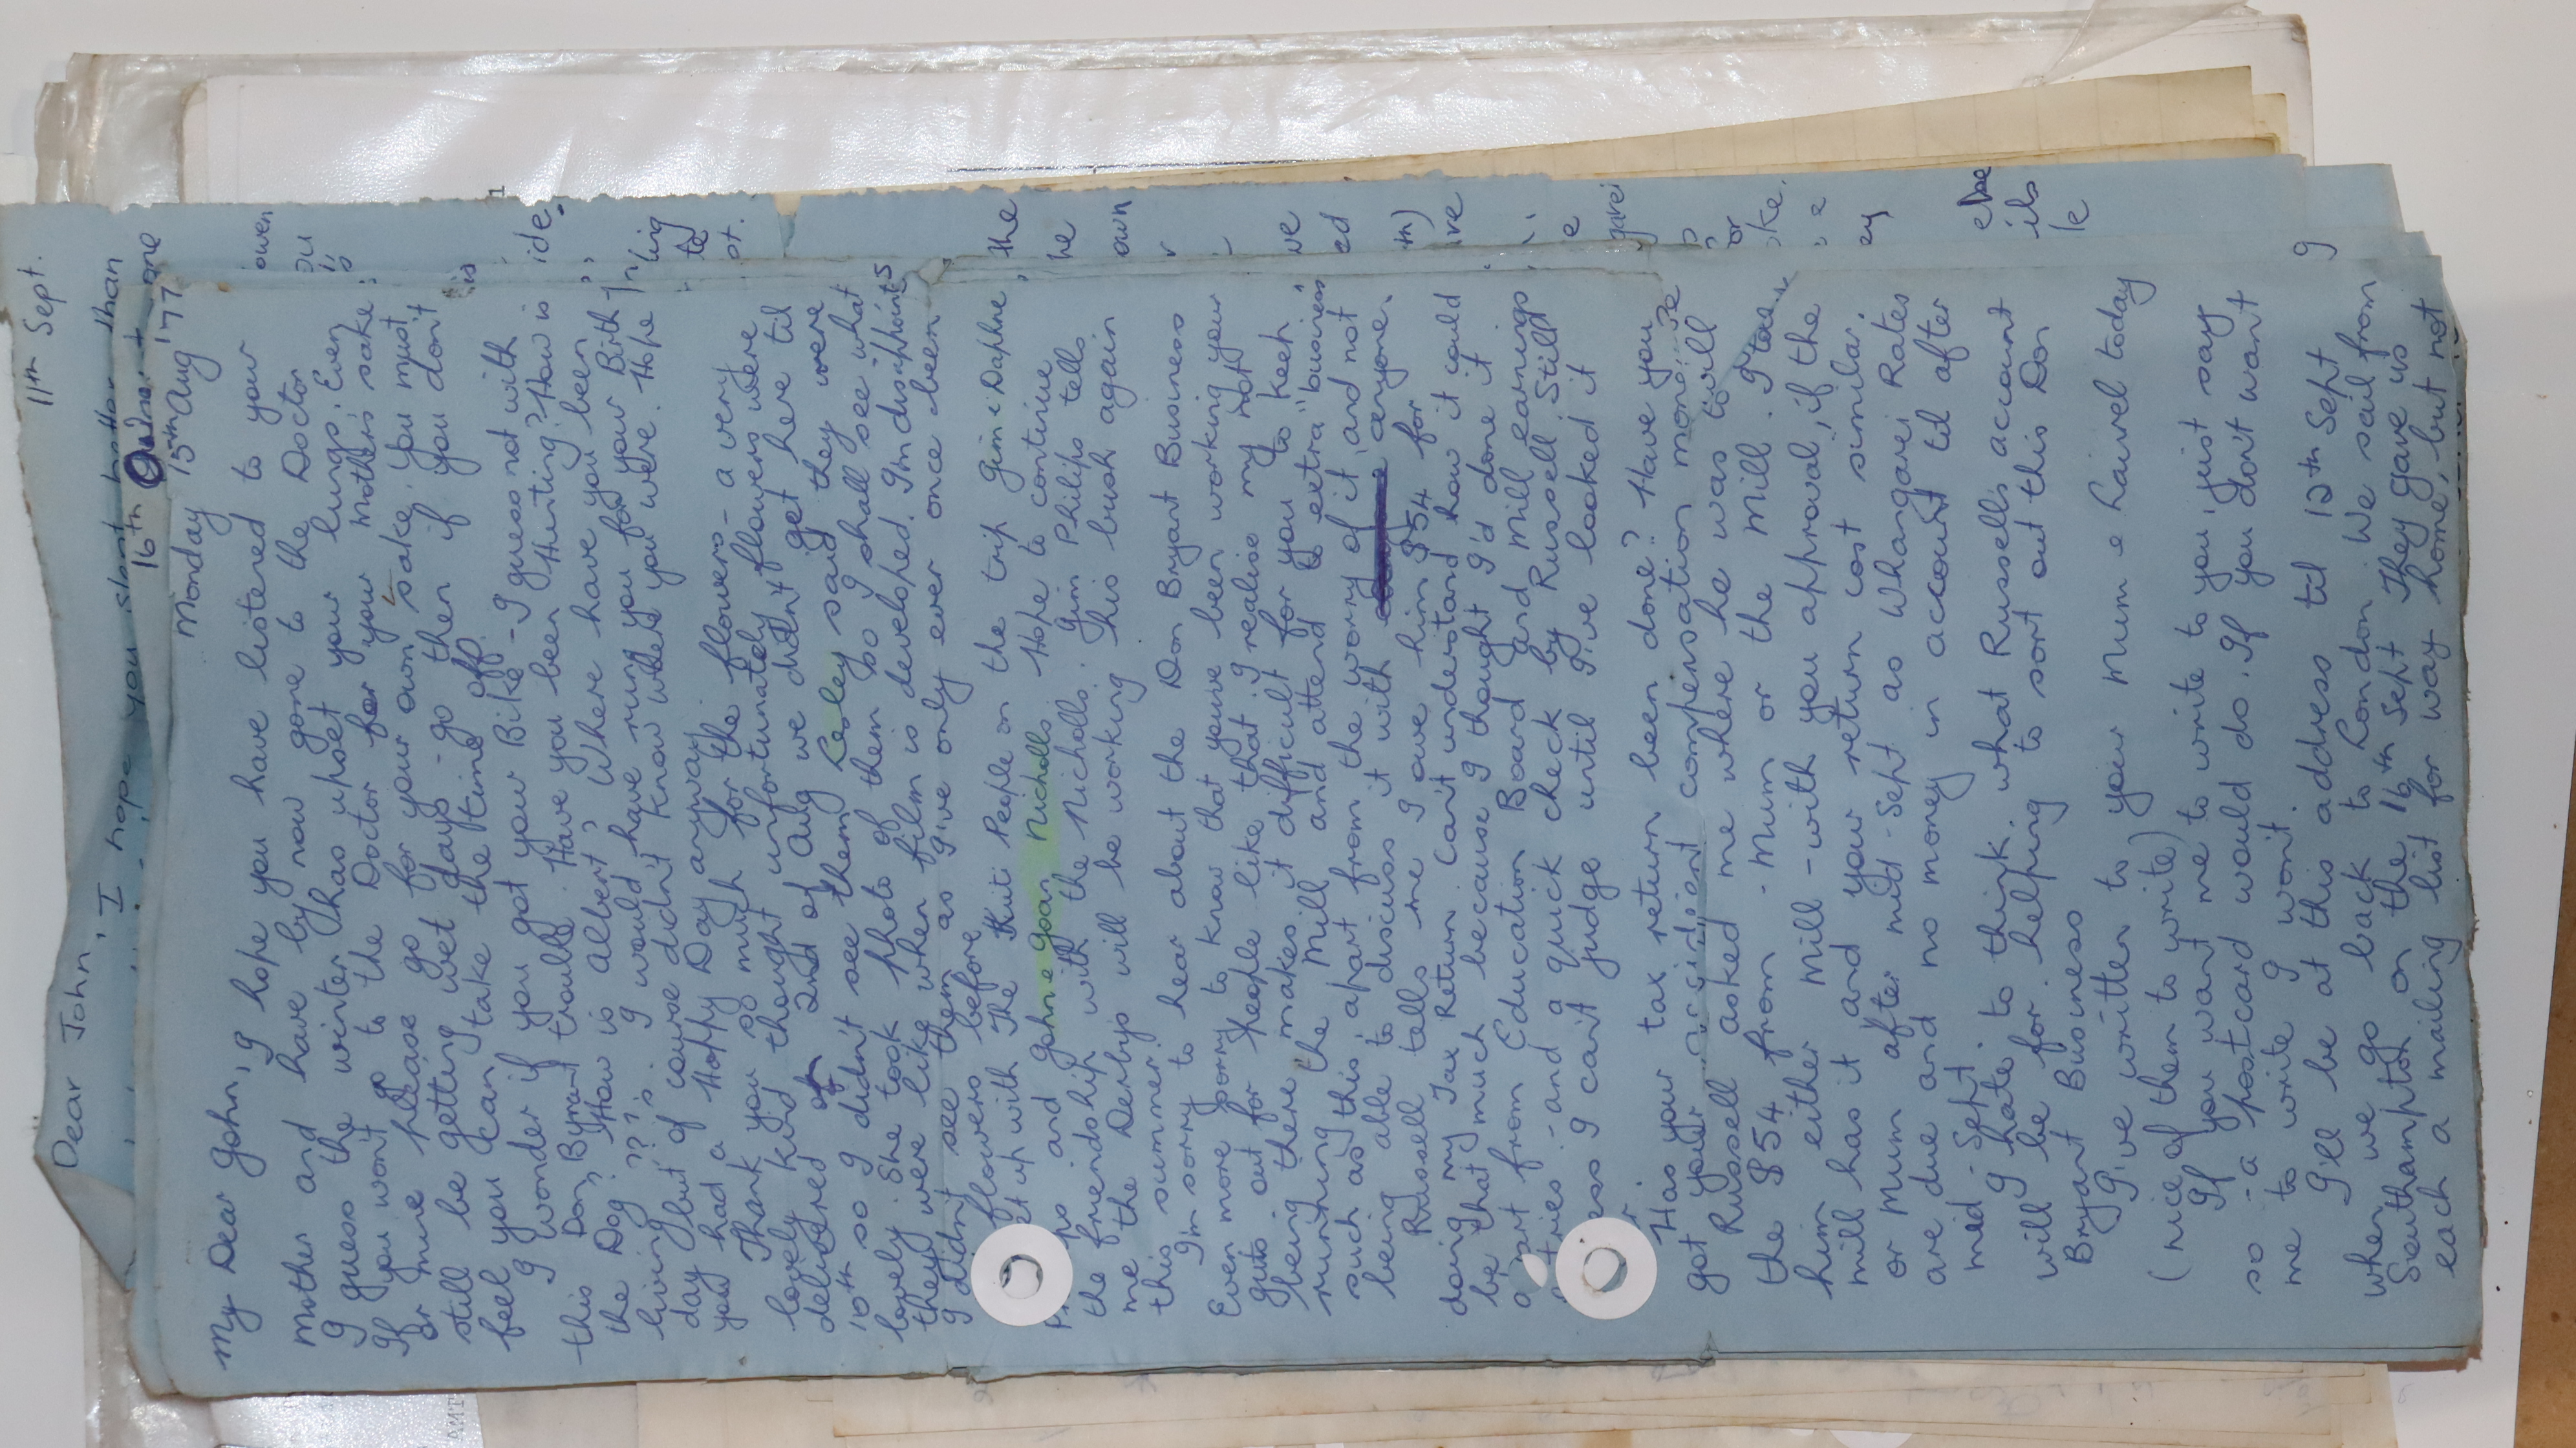 11th Sept.
Dear John, I hope you
16th
Monday 15th Aug '77
My Dear John, I hope you have listened to your
Mother and have by now gone to the Doctor
I guess the winter has upset your lungs. Even
If you won't go to the Doctor for your mother's sake
or mine please go for your own sake. You must
still be getting wet days - go then if you don't
feel you can take the time off.
I wonder if you got your Bike - I guess not with
this Don Bryant trouble. Have you been Hunting? How is
the Dog? How is Albert? Where have you been
living ???'s. I would have rung you for your Birth
day but of course didn't know where you were. Hope
you had a Happy Day anyway.
Thank you so much for the flowers - a very
lovely kind thought unfortunately flowers were
delivered on 2nd of Aug we didn't get here til
10th so I didn't see them Lesley said they were
lovely. She took photo of them so I shall see what
they were like when film is developed. I'm disappointed
I didn't see them as I've only ever once been
flowers before
up with The Kiwi People on the trip Jim & Daphne
and John & Joan Nicholls. Hope to continue
the friendship with the Nicholls. Jim Philips tells
me the Derbys will be working this bush again
this summer.
I'm sorry to hear about the Don Bryant Business
Even more sorry to know that you've been working your
guts out for people like that. I realise my not
being there makes it difficult for you to keep
running the Mill and attend to extra "business"
such as this, apart from the worry of it and not
being able to discuss it with anyone.
Russell tells me I owe him $54 for
doing my Tax Return. Can't understand how it could
be that much because I thought I'd done it
apart from Education Board and Mill earnings
entries - and a quick check by Russell. Still
I can't judge until I've looked it
Has your tax return been done? Have you
got your accident compensation money
Russell asked me where he was to
the $54 from - Mum or the Mill. I
him either Mill - with you approval, if the
mill has it and your return cost similar,
or Mum after mid-Sept as Whangarei Rates
are due and no money in account til after
mid-Sept.
I hate to think what Russells account
will be for helping to sort out this Don
Bryant Business
I've written to your Mum & Laurel today
(nice of them to write)
If you want me to write to you, just say
so - a postcard would do. If you don't want
me to write I won't.
I'll be at this address til 12th Sept
when we go back to London. We sail from
Southampton on the 16th Sept They gave us
each a mailing list for way home, but not